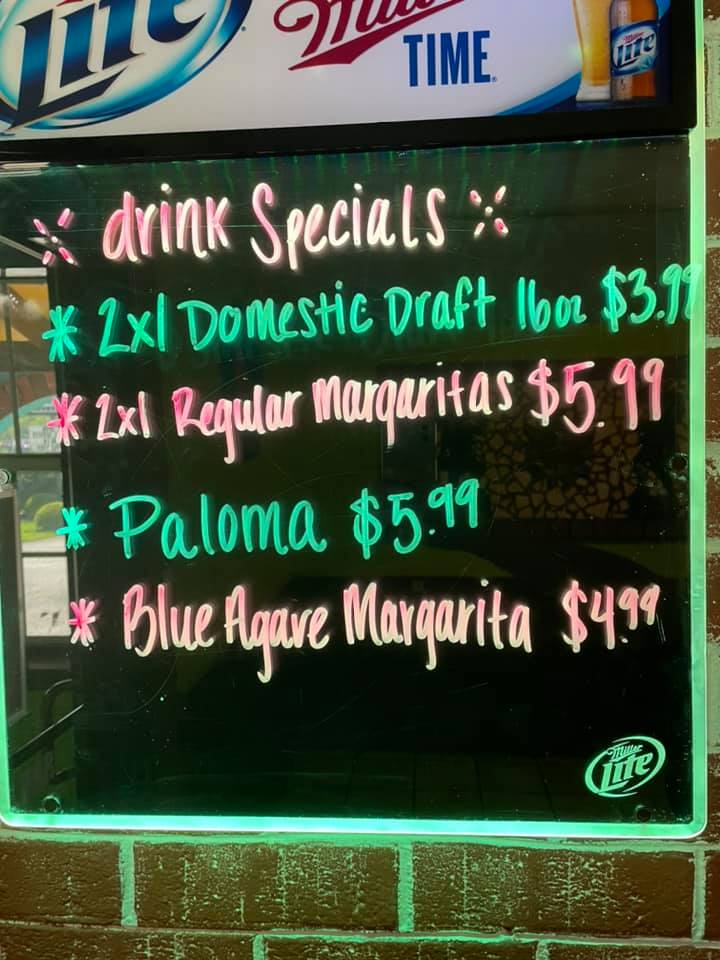 Lite
Miller
TIME
Miller
Lite
drink Specials
* 2x1 Domestic Draft 16oz $3.99
* 2x1 Regular Margaritas $5.99
* Paloma $5.99
* Blue Agave Margarita $4.99
Miller
Lite